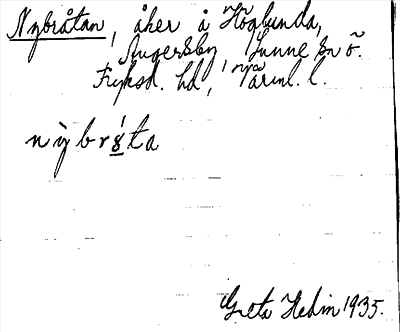 Nybråtan, åker å Höglunda,
Ingersby Sunne sn ö.
Fryksd. hd, Värml. l.
nỳbráta
Greta Hedin 1935.